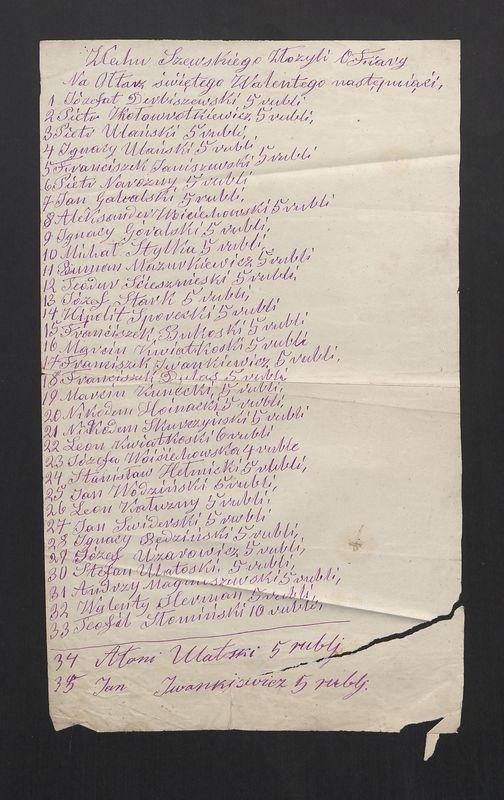 Zechu Szewskiego Złozyli Ofiary
Na Ołtarz świętego Walentego następniąci,
1 Józefat Derbiszewski 5 rubli
2 Piotr Kołowrotkiewicz 5 rubli,
3 Piotr Ulański 5 rubli,
4 Ignacy Ulański 5 rubli
5 Franciszek Janiszewski 5 rubli
6 Piotr Narozny 5 rubli
7 Jan Galvalski 5 rubli,
8 Aleksander Wociechowski 5 rubli
9 Ignacy Góralski 5 rubli,
10 Michał Hyłka 5 rubli,
11 Mazurkiewicz 5 rubli
12 Teodor 5 rubli
13 Józef Stark 5 rubli,
14 Hipolit 5 rubli
15 Franciszek Bukoski 5 rubli
16 Marcin Kwiatkoski 5 rubli
17 Franciszek Iwankiewicz 5 rubli,
18 Franciszek 5 rubli
19 Marcin Kunecki, 5 rubli
20 Nikodem Hoinacki 5 rubli
21 Nikodem Skurczyński 5 rubli
22 Leon Kwiatkoski 6 rubli
23 Józefa Wojsiechowska 4 ruble
24 Stanisław Helmicki 5 rubli,
25 Jan Wódziński 5 rubli,
26 Leon Kałuzny 5 rubli,
27 Jan Swiderski 5 rubli
28 Ignacy Będziński 5 rubli,
29 Józef Uzarowicz 5 rubli,
30 Stefan Ulatoski 5 rubli,
31 Andrzy Magnuszewski 5 rubli,
32 Walenty Herman 5 rubli,
33 Teofil Słomiński 10 rubli,
34 Atoni Ulatski 5 rublj
35 Jan Iwankiewicz 5 rublj.